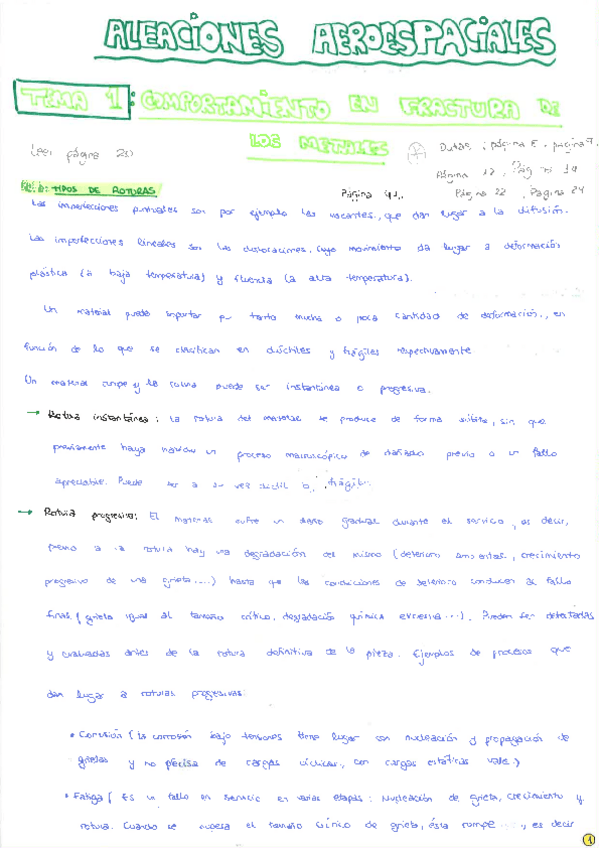 ALEACIONES AEROESPACIALES
TEMA 1: COMPORTAMIENTO EN FRACTURA DE
LOS METALES
Leer página 23) Dudas: página 5, página 9,
Página 12, Pág 19
TIPOS DE ROTURAS Página 41, Página 22, Página 24
Las imperfecciones puntuales son por ejemplo las vacantes, que dan lugar a la difusión.
Las imperfecciones lineales son las dislocaciones, cuyo movimiento da lugar a deformación
plástica (a baja temperatura) y fluencia (a alta temperatura).
Un material puede importar por tanto mucha o poca cantidad de deformación, en
función de lo que se clasifican en dúctiles y frágiles respectivamente
Un material rompe y la rotura puede ser instantánea o progresiva.
→ Rotura instantánea: La rotura del material se produce de forma súbita, sin que
previamente haya habido un proceso macroscópico de dañado previo o un fallo
apreciable. Puede ser a su vez dúctil o frágil.
→ Rotura progresiva: El material sufre un daño gradual durante el servicio, es decir,
previo a la rotura hay una degradación del mismo (deterioro, crecimiento
progresivo de una grieta....) hasta que las condiciones de deterioro conducen al fallo
final (grieta igual al tamaño crítico, degradación química excesiva...). Pueden ser detectadas
y evaluadas antes de la rotura definitiva de la pieza. Ejemplos de procesos que
dan lugar a roturas progresivas:
• Corrosión (la corrosión bajo tensiones tiene lugar con nucleación y propagación de
grietas y no precisa de cargas cíclicas, con cargas estáticas vale.)
• Fatiga (Es un fallo en servicio en varias etapas: Nucleación de grieta, crecimiento y
rotura. Cuando se supera el tamaño crítico de grieta, ésta rompe..., es decir
1